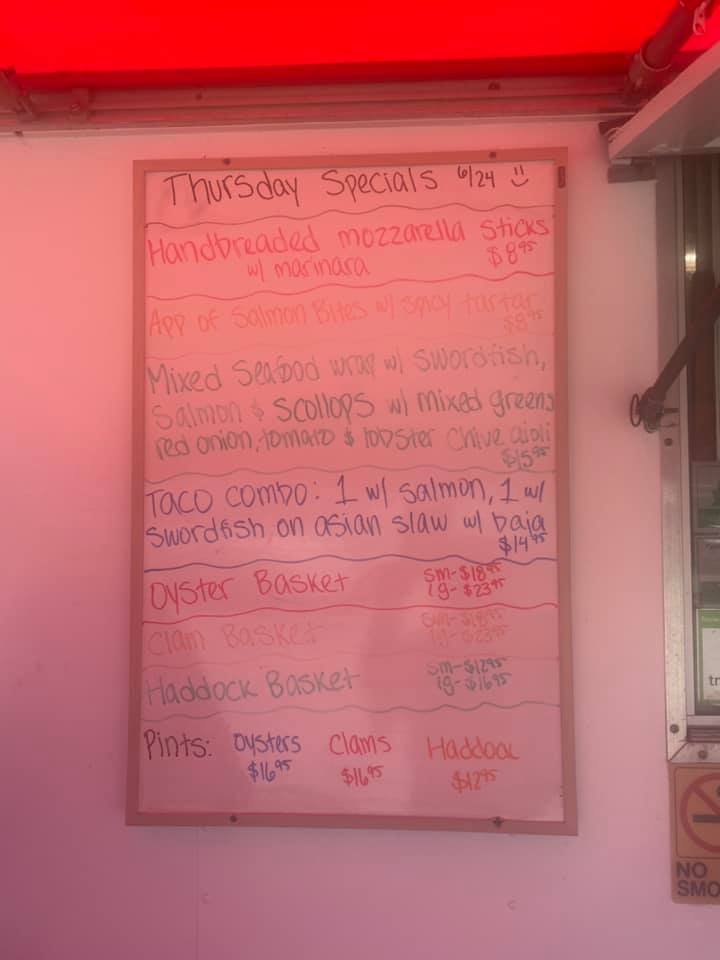 Thursday Specials 6/24
Handbreaded mozzarella sticks
w/ marinara $8.95
App of Salmon Bites w/ spicy tartar
$8.95
Mixed Seafood wrap w/ swordfish,
Salmon & Scollops w/ mixed greens
red onion, tomato & lobster chive aioli
$15.95
Taco combo: 1 w/ salmon, 1 w/
swordfish on asian slaw w/ baja
$14.95
Oyster Basket sm-$18.95
lg-$23.95
Clam Basket sm-$18.95
lg-$23.95
Haddock Basket sm-$12.95
lg-$16.95
Pints: Oysters Clams Haddock
$16.95 $16.95 $12.95
NO
SMO